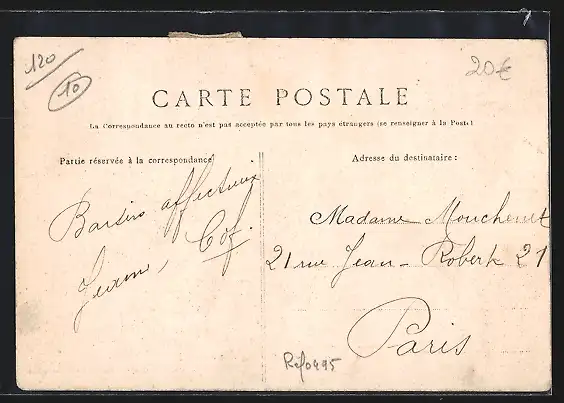 120
10
20€
CARTE POSTALE
La Correspondance au recto n'est pas acceptée par tous les pays étrangers (se renseigner à la Poste)
Partie réservée à la correspondance
Adresse du destinataire :
affectueux
Madame Mouchenet
21 rue Jean-Robert 21
Paris
Réf0495